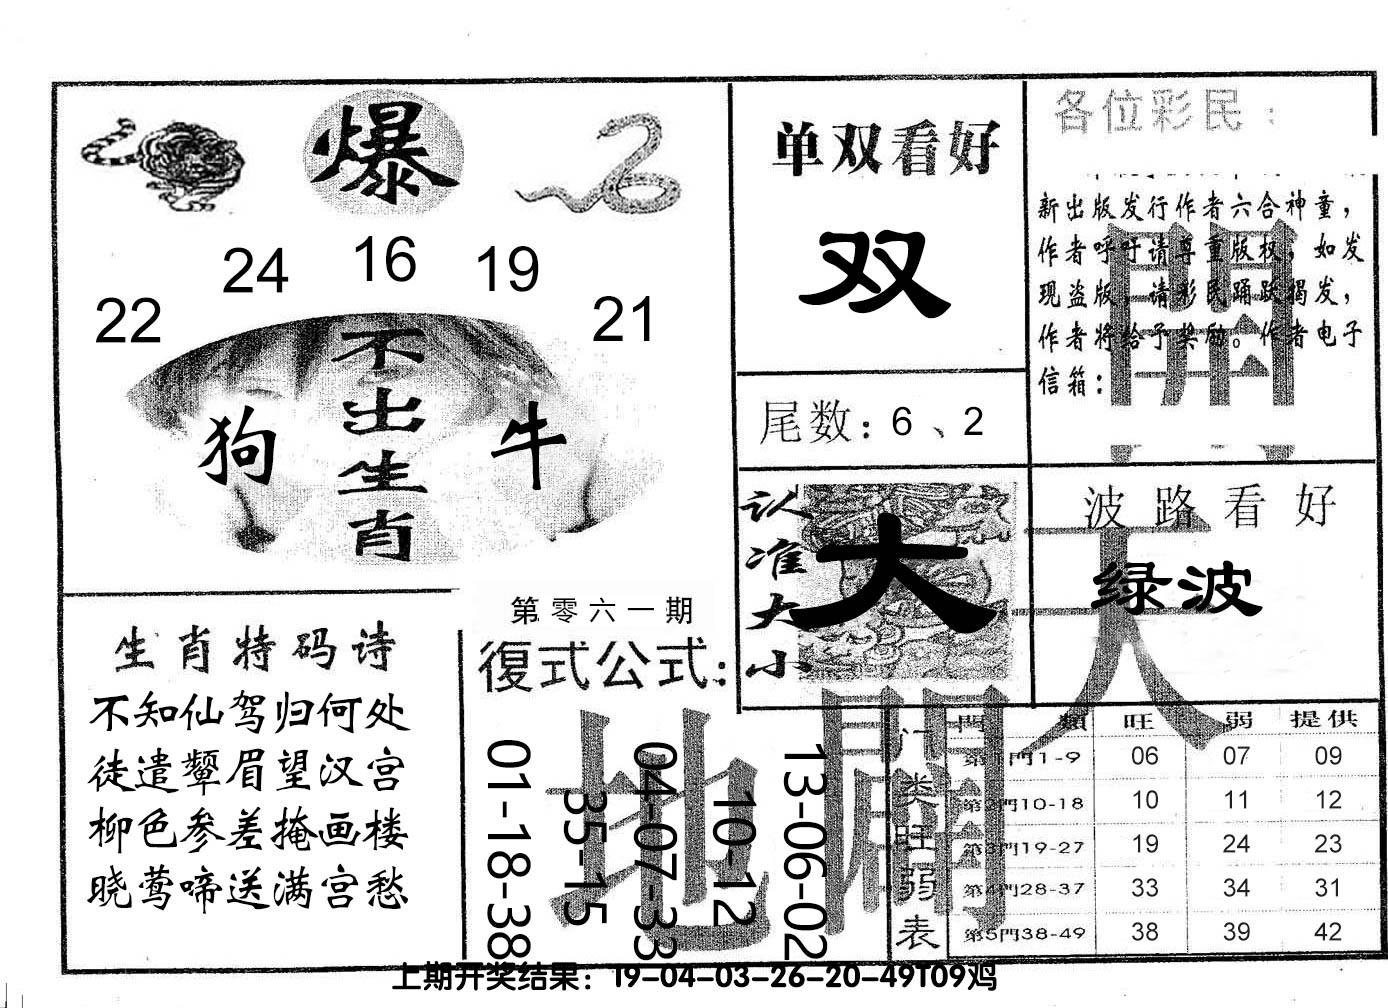 爆
24 16 19
22 21
不出生肖
狗 牛
单双看好
双
尾数：6、2
各位彩民：
新出版发行作者六合神童，
作者呼吁请尊重版权，如发
现盗版，请彩民踊跃揭发，
作者将给予奖励。作者电子
信箱：
開
天
认准大小
大
波路看好
绿波
生肖特码诗
不知仙驾归何处
徒遣颦眉望汉宫
柳色参差掩画楼
晓莺啼送满宫愁
第零六一期
復式公式：
01-18-38
35-15
04-07-33
10-12
13-06-02
地
門类旺弱表
門類 旺 弱 提供
第1門1-9 06 07 09
第2門10-18 10 11 12
第3門19-27 19 24 23
第4門28-37 33 34 31
第5門38-49 38 39 42
上期开奖结果：19-04-03-26-20-49T09鸡